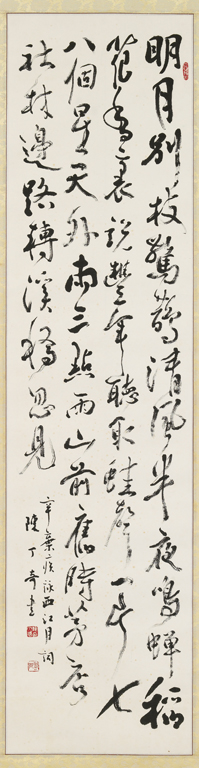 明月別枝驚鵲清風半夜鳴蟬稻
花香裏說豐年聽取蛙聲一片七
八個星天外兩三點雨山前舊時茅店
社林邊路轉溪橋忽見
辛棄疾詠西江月詞
陳丁奇書